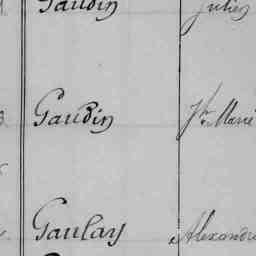 Gaudin Julien
Gaudin Jh Marie
Gaulay Alexandre